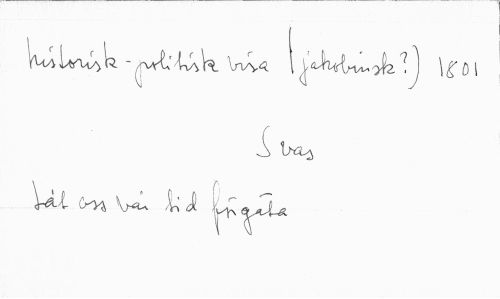 historisk-politisk visa (jakobinsk?) 1801
S vas
Låt oss vår tid förgäta